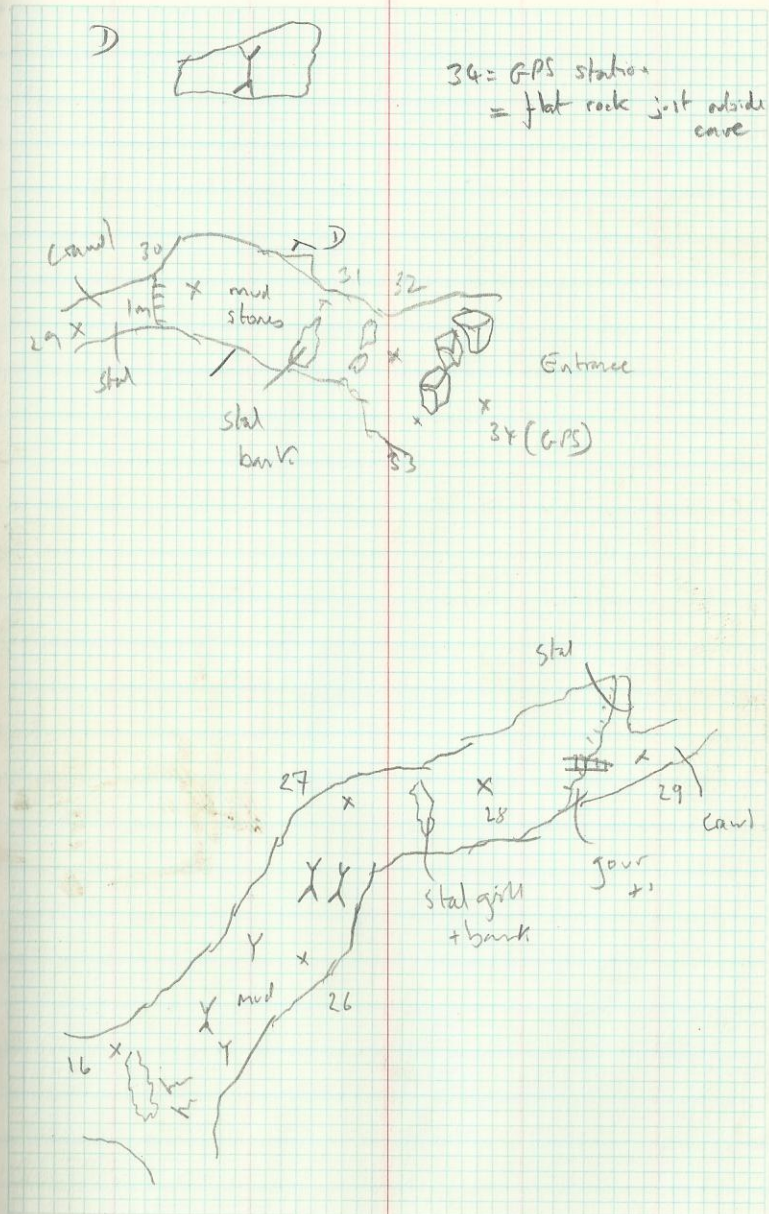 D
34 = GPS station
= flat rock just outside
cave
Crawl
30
D
31
32
mud
stones
1m
29
Stal
Entrance
Stal
bank
34 (GPS)
33
Stal
27
28
29
Crawl
gour
Stal grill
+ bank
mud
26
16